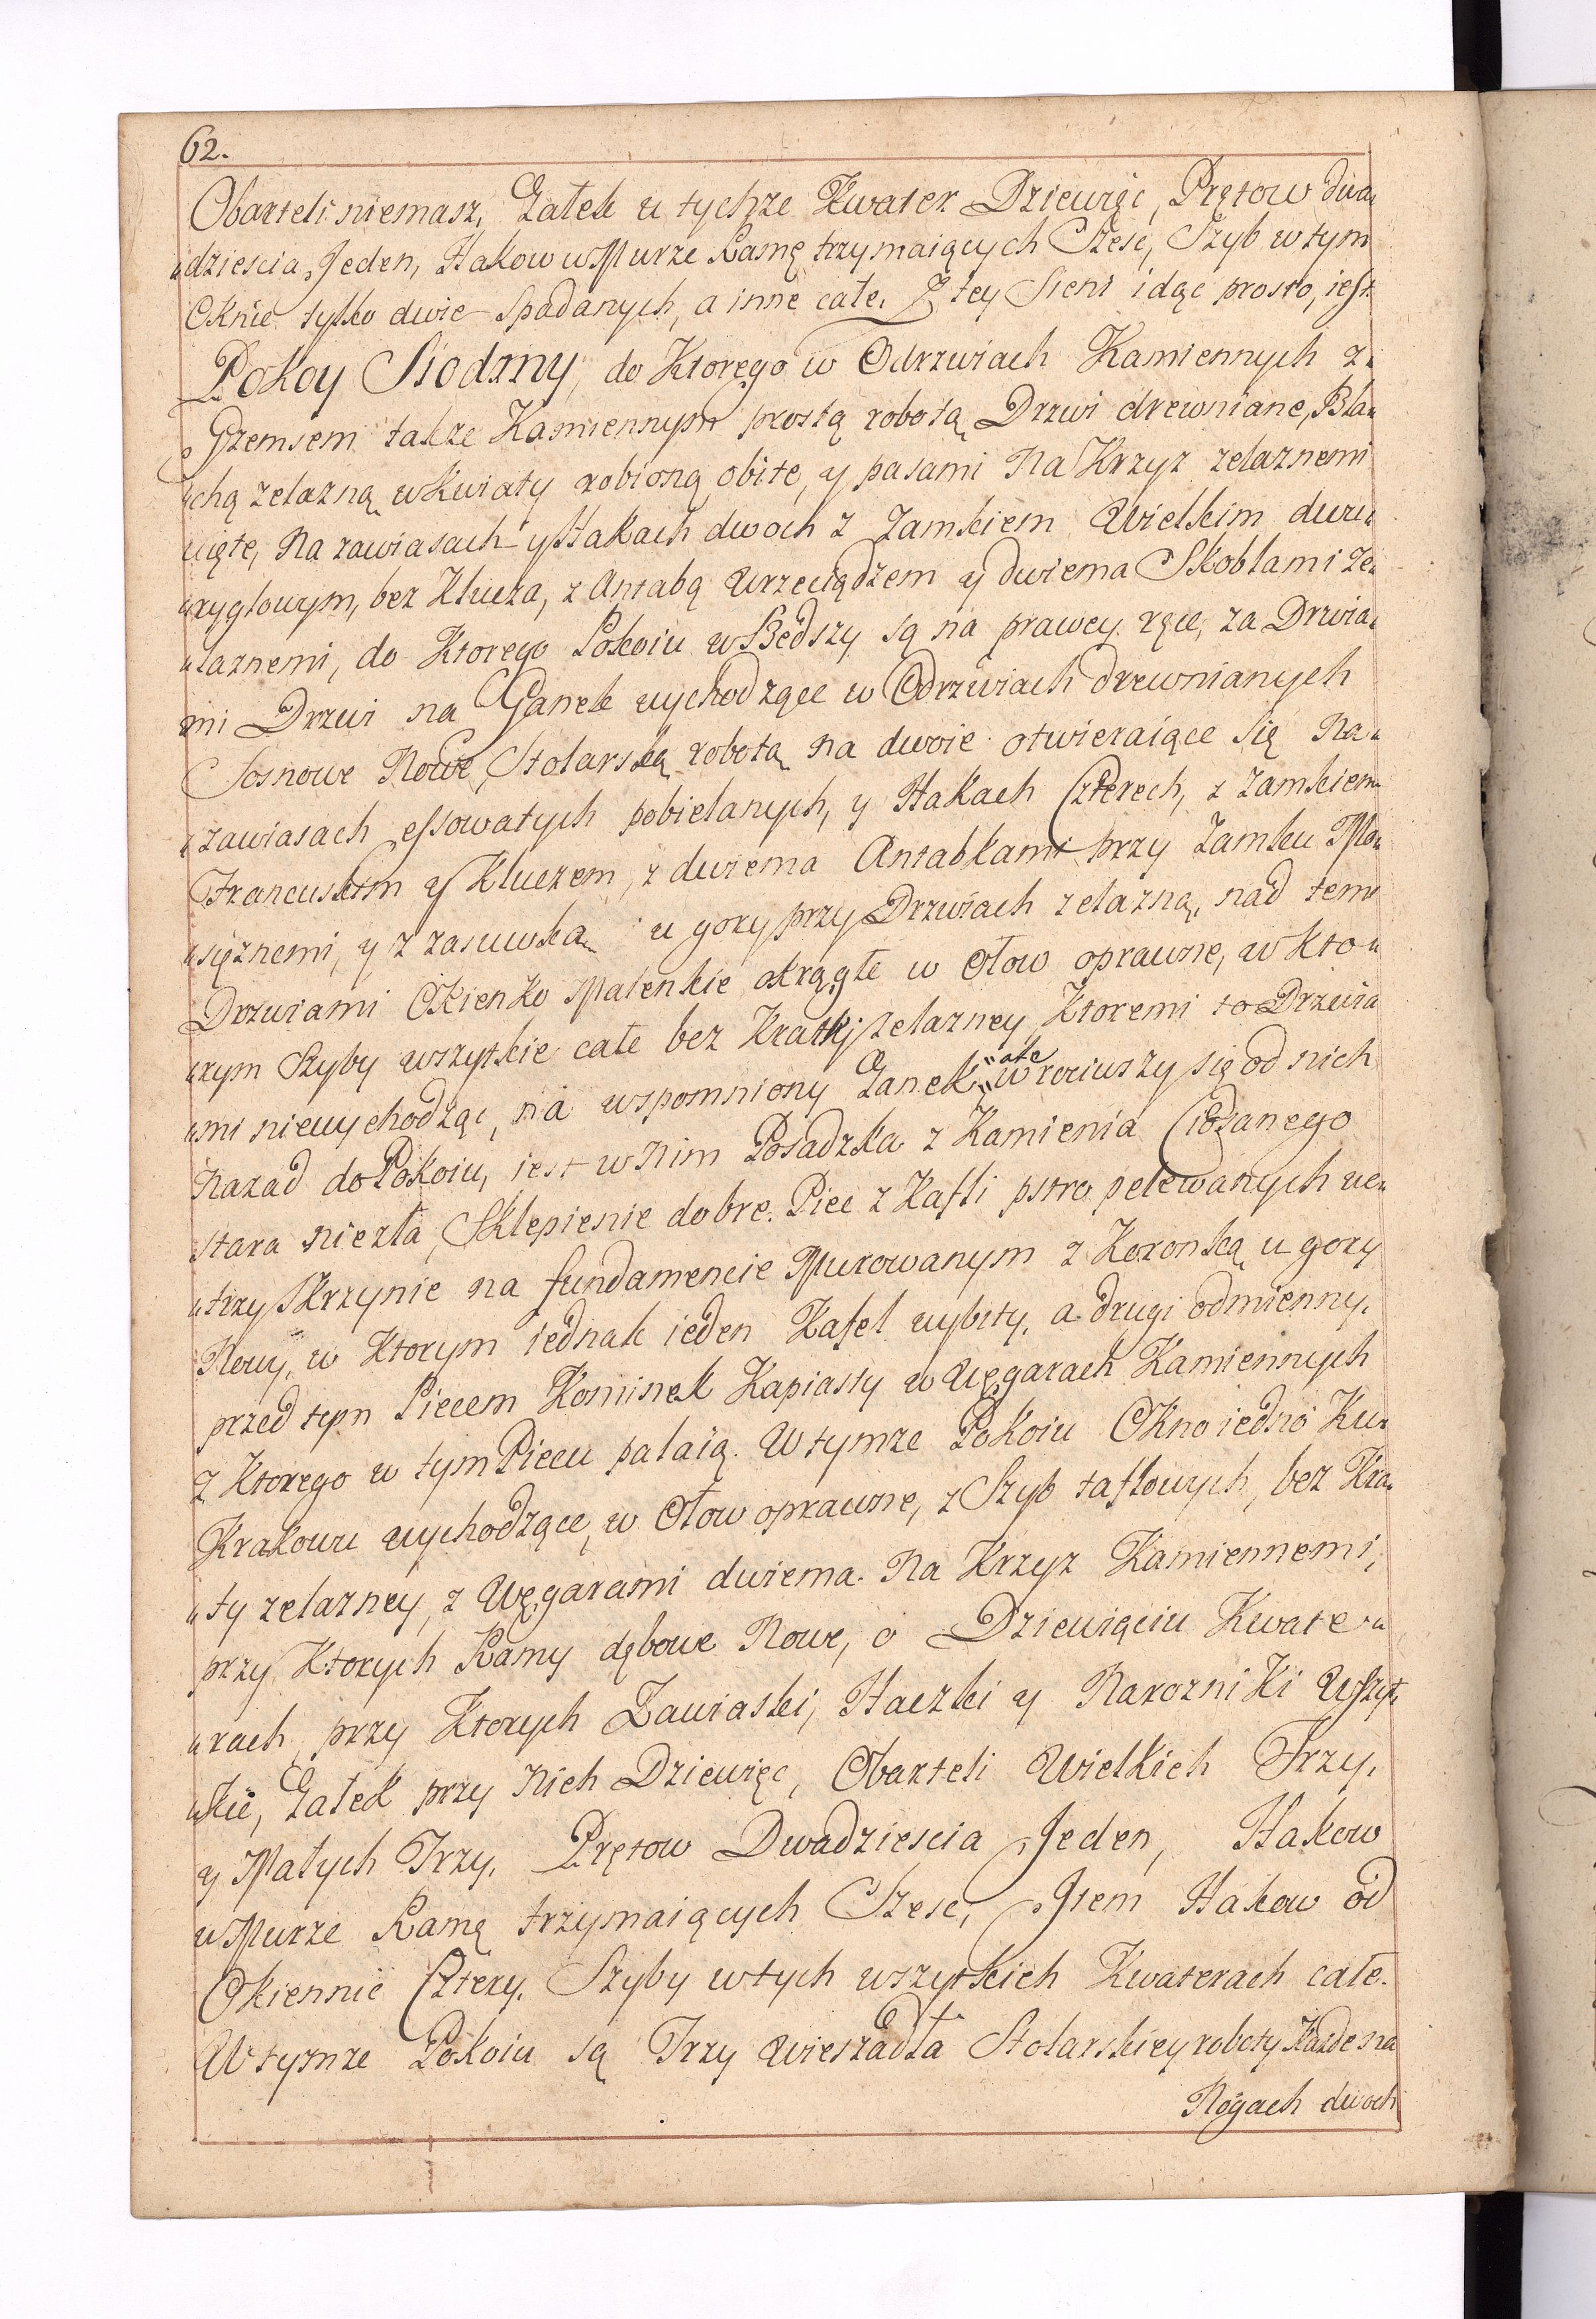 62.
Obarteli niemasz, Gałek u tychże Kwater Dziewięć, Prętow dwa„
„dziescia Jeden, Hakow w Murze Ramę trzymaiących Szesc, Szyb w tym
Oknie tylko dwie spadanych, a inne całe. Z tey Sieni idąc prosto, iest
Pokoy Siodmy, do Ktorego w Odrzwiach Kamiennych z„
Gzemsem także Kamiennym prostą robotą Drzwi drewniane, Bla„
„chą zelazną w Kwiaty robioną obite, y pasami na Krzyz zelaznemi
uięte, na zawiasach y Hakach dwoch z Zamkiem Wielkim dwu„
„ryglowym, bez Klucza, z Antabą Wrzeciądzem y dwiema Skoblami ze„
„laznemi, do Ktorego Pokoiu wszedszy są na prawey ręce, za Drzwia„
mi Drzwi na Ganek wychodzące w Odrzwiach drewnianych
Sosnowe Nowe, Stolarską robotą na dwoie otwieraiące się na„
„zawiasach essowatych pobielanych, y Hakach Czterech, z Zamkiem
Francuskim y Kluczem, z dwiema Antabkami przy Zamku Mo„
„sięznemi, y z zasuwką u gory przy Drzwiach zelazną, nad temi
Drzwiami Okienko Malenkie okrągłe w Ołow oprawne, w Kto„
„rym Szyby wszytkie całe bez Kratki zelazney, Ktoremi to Drzwia
„mi niewychodząc, na wspomniony Ganek „ale„ wrociwszy się od nich
Nazad do Pokoiu, iest w nim Posadzka z Kamienia Ciosanego
stara niezła, Sklepienie dobre. Piec z Kafli pstro polewanych we„
„trzy Skrzynie na fundamencie Murowanym z Koronką u gory
Nowy, w Ktorym iednak ieden Kafel wybity, a drugi odmienny.
przed tym Piecem Kominek Kapiasty w Węgarach Kamiennych
z Ktorego w tym Piecu palaią. W tymze Pokoiu Okno iedno Ku„
Krakowu wychodzące, w Ołow oprawne, z Szyb taflowych, bez Kra„
„ty zelazney, z Węgarami dwiema na Krzyz Kamiennemi,
przy Ktorych Ramy dębowe Nowe, o Dziewięciu Kwate„
„rach, przy Ktorych Zawiaski, Haczki y Narozniki Wszyt„
„kie, Gałek przy nich Dziewięc, Obarteli Wielkich Trzy,
y Małych Trzy, Prętow Dwadziescia Jeden, Hakow
w Murze Ramę trzymaiących Szesc, Jtem Hakow od
Okiennic Cztery, Szyby w tych wszytkich Kwaterach całe.
W tymze Pokoiu są Trzy Wieszadła Stolarskiey roboty Kazde na
Rogach dwoch